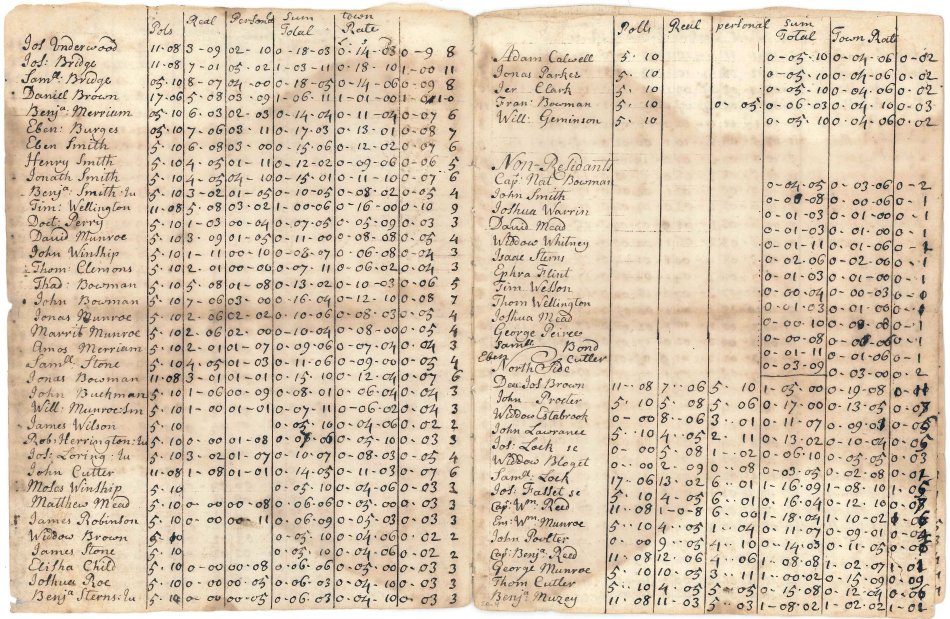 Pols Real Personal Sum Total town Rate
Jos Underwood 11-08 3-09 02-10 0-18-03 0-14-03 0-9 8
Jos: Bridge 11-08 7-01 05-02 1-03-11 0-18-10 1-00 11
Samll. Bridge 05-10 8-07 04-00 0-18-05 0-14-06 0-09 8
Daniel Brown 17-06 5-08 03-09 1-06-11 1-01-00
Benja. Merrium 05-10 6-03 02-03 0-14-04 0-11-04 0-07 6
Eben: Burges 05-10 7-06 03-11 0-17-03 0-13-01 0-08 7
Eben Smith 5-10 6-08 03-00 0-15-06 0-12-02 0-07 6
Henry Smith 5-10 4-05 01-11 0-12-02 0-09-06 0-06 5
Jonath Smith 5-10 4-05 04-10 0-15-01 0-11-10 0-07 6
Benja. Smith Ju 5-10 3-02 01-05 0-10-05 0-08-02 0-05 4
Tim: Wellington 11-08 5-08 03-02 1-00-06 0-16-00 0-10 9
Doct: Perry 5-10 1-03 00-04 0-07-05 0-05-09 0-03 3
David Munroe 5-10 3-09 01-05 0-11-00 0-08-08 0-05 4
John Winship 5-10 1-11 00-10 0-08-07 0-06-08 0-04 3
Thom: Clemons 5-10 2-01 00-00 0-07-11 0-06-02 0-04 3
Thad: Bowman 5-10 5-08 01-08 0-13-02 0-10-03 0-06 5
John Bowman 5-10 7-06 03-00 0-16-04 0-12-10 0-08 7
Jonas Munroe 5-10 2-06 02-02 0-10-06 0-08-03 0-05 4
Marrit Munroe 5-10 2-06 02-00 0-10-04 0-08-00 0-05 4
Amos Merriam 5-10 2-01 01-07 0-09-06 0-07-04 0-04 3
Samll. Stone 5-10 4-05 01-03 0-11-06 0-09-00 0-05 4
Jonas Bowman 11-08 3-01 01-01 0-15-10 0-12-04 0-07 6
John Buckman 5-10 1-06 00-09 0-08-01 0-06-04 0-04 3
Will: Munroe Sin 5-10 1-00 01-01 0-07-11 0-06-02 0-04 3
James Wilson 5-10 0-05-10 0-04-06 0-02 2
Rob: Herrington: Ju 5-10 0-00 01-08 0-05-10 0-03 3
Jos: Loring: Ju 5-10 3-02 01-07 0-10-07 0-08-03 0-05 4
John Cutter 11-08 1-08 01-01 0-14-05 0-11-03 0-07 6
Moses Winship 5-10 0-05-10 0-04-06 0-03 3
Matthew Mead 5-10 0-00 00-08 0-06-06 0-05-00 0-03 3
James Robinson 5-10 0-00 00-11 0-06-09 0-05-03 0-03 3
Widdow Brown 5-10 0-05-10 0-04-06 0-02 2
James Stone 5-10 0-05-10 0-04-06 0-02 2
Elisha Child 5-10 0-00 00-08 0-06-06 0-05-00 0-03 3
Joshua Roe 5-10 0-00 00-05 0-06-03 0-04-10 0-03 3
Benja. Sterns: Ju 5-10 0-00 00-05 0-06-03 0-04-10 0-03 3
Polls Reall personal Sum Total Town Rate
Adam Calwell 5-10 0-05-10 0-04-06 0-02
Jonas Parker 5-10 0-05-10 0-04-06 0-02
Jer Clark 5-10 0-05-10 0-04-06 0-02
Fran: Bowman 5-10 0-05 0-06-03 0-04-10 0-03
Will: Geminson 5-10 0-05-10 0-04-06 0-02
Non-Residants
Cap: Nat Bowman 0-04-05 0-03-06 0-2
John Smith 0-00-08 0-00-06 0-1
Joshua Warrin 0-01-03 0-01-00 0-1
David Mead 0-01-03 0-01-00 0-1
Widdow Whitney 0-01-11 0-01-06
Isaac Sterns 0-02-06 0-02-06 0-1
Ephra Flint 0-01-03 0-01-00
Tim: Wesson 0-00-04 0-00-03
Thom Wellington 0-01-03 0-01-00
Joshua Mead 0-00-10
George Peirce 0-00-08 0-1
Samll. Bond 0-01-11 0-01-06 0-1
Eben Cutler 0-03-09 0-03-00 0-2
North Side
Dea: Jos Brown 11-08 7-06 5-10 1-05-00 0-19-08
John Procter 5-10 5-08 5-06 0-17-00 0-13-05
Widdow Estabrook 0-00 8-06 3-01 0-11-07
John Lawrance 5-10 4-05 2-11 0-13-02 0-10-04
Jos: Lock se 0-00 5-08 1-02 0-06-10 0-05-05 0-03
Widdow Bloget 0-00 2-09 0-08 0-03-05 0-02-08
Samll. Lock 17-06 13-02 6-01 1-16-09 1-08-10
Jos: Fasset se 5-10 4-05 6-01 0-16-04 0-12-10
Cap: Wm. Reed 11-08 1-0-8 6-00 1-18-04 1-10-02
En: Wm. Munroe 5-10 4-05 1-04 0-11-07 0-09-01
John Poulter 0-00 9-05 4-10 0-14-03 0-11-05
Cap: Benja. Reed 11-08 12-06 4-10 1-08-08
George Munroe 5-10 10-05 3-11 1-00-02 0-15-09
Thom Cutler 5-10 4-05 5-05 0-15-08 0-12-04 0-06
Benja. Muzey 11-08 11-03 5-03 1-08-02 1-02-02 1-02